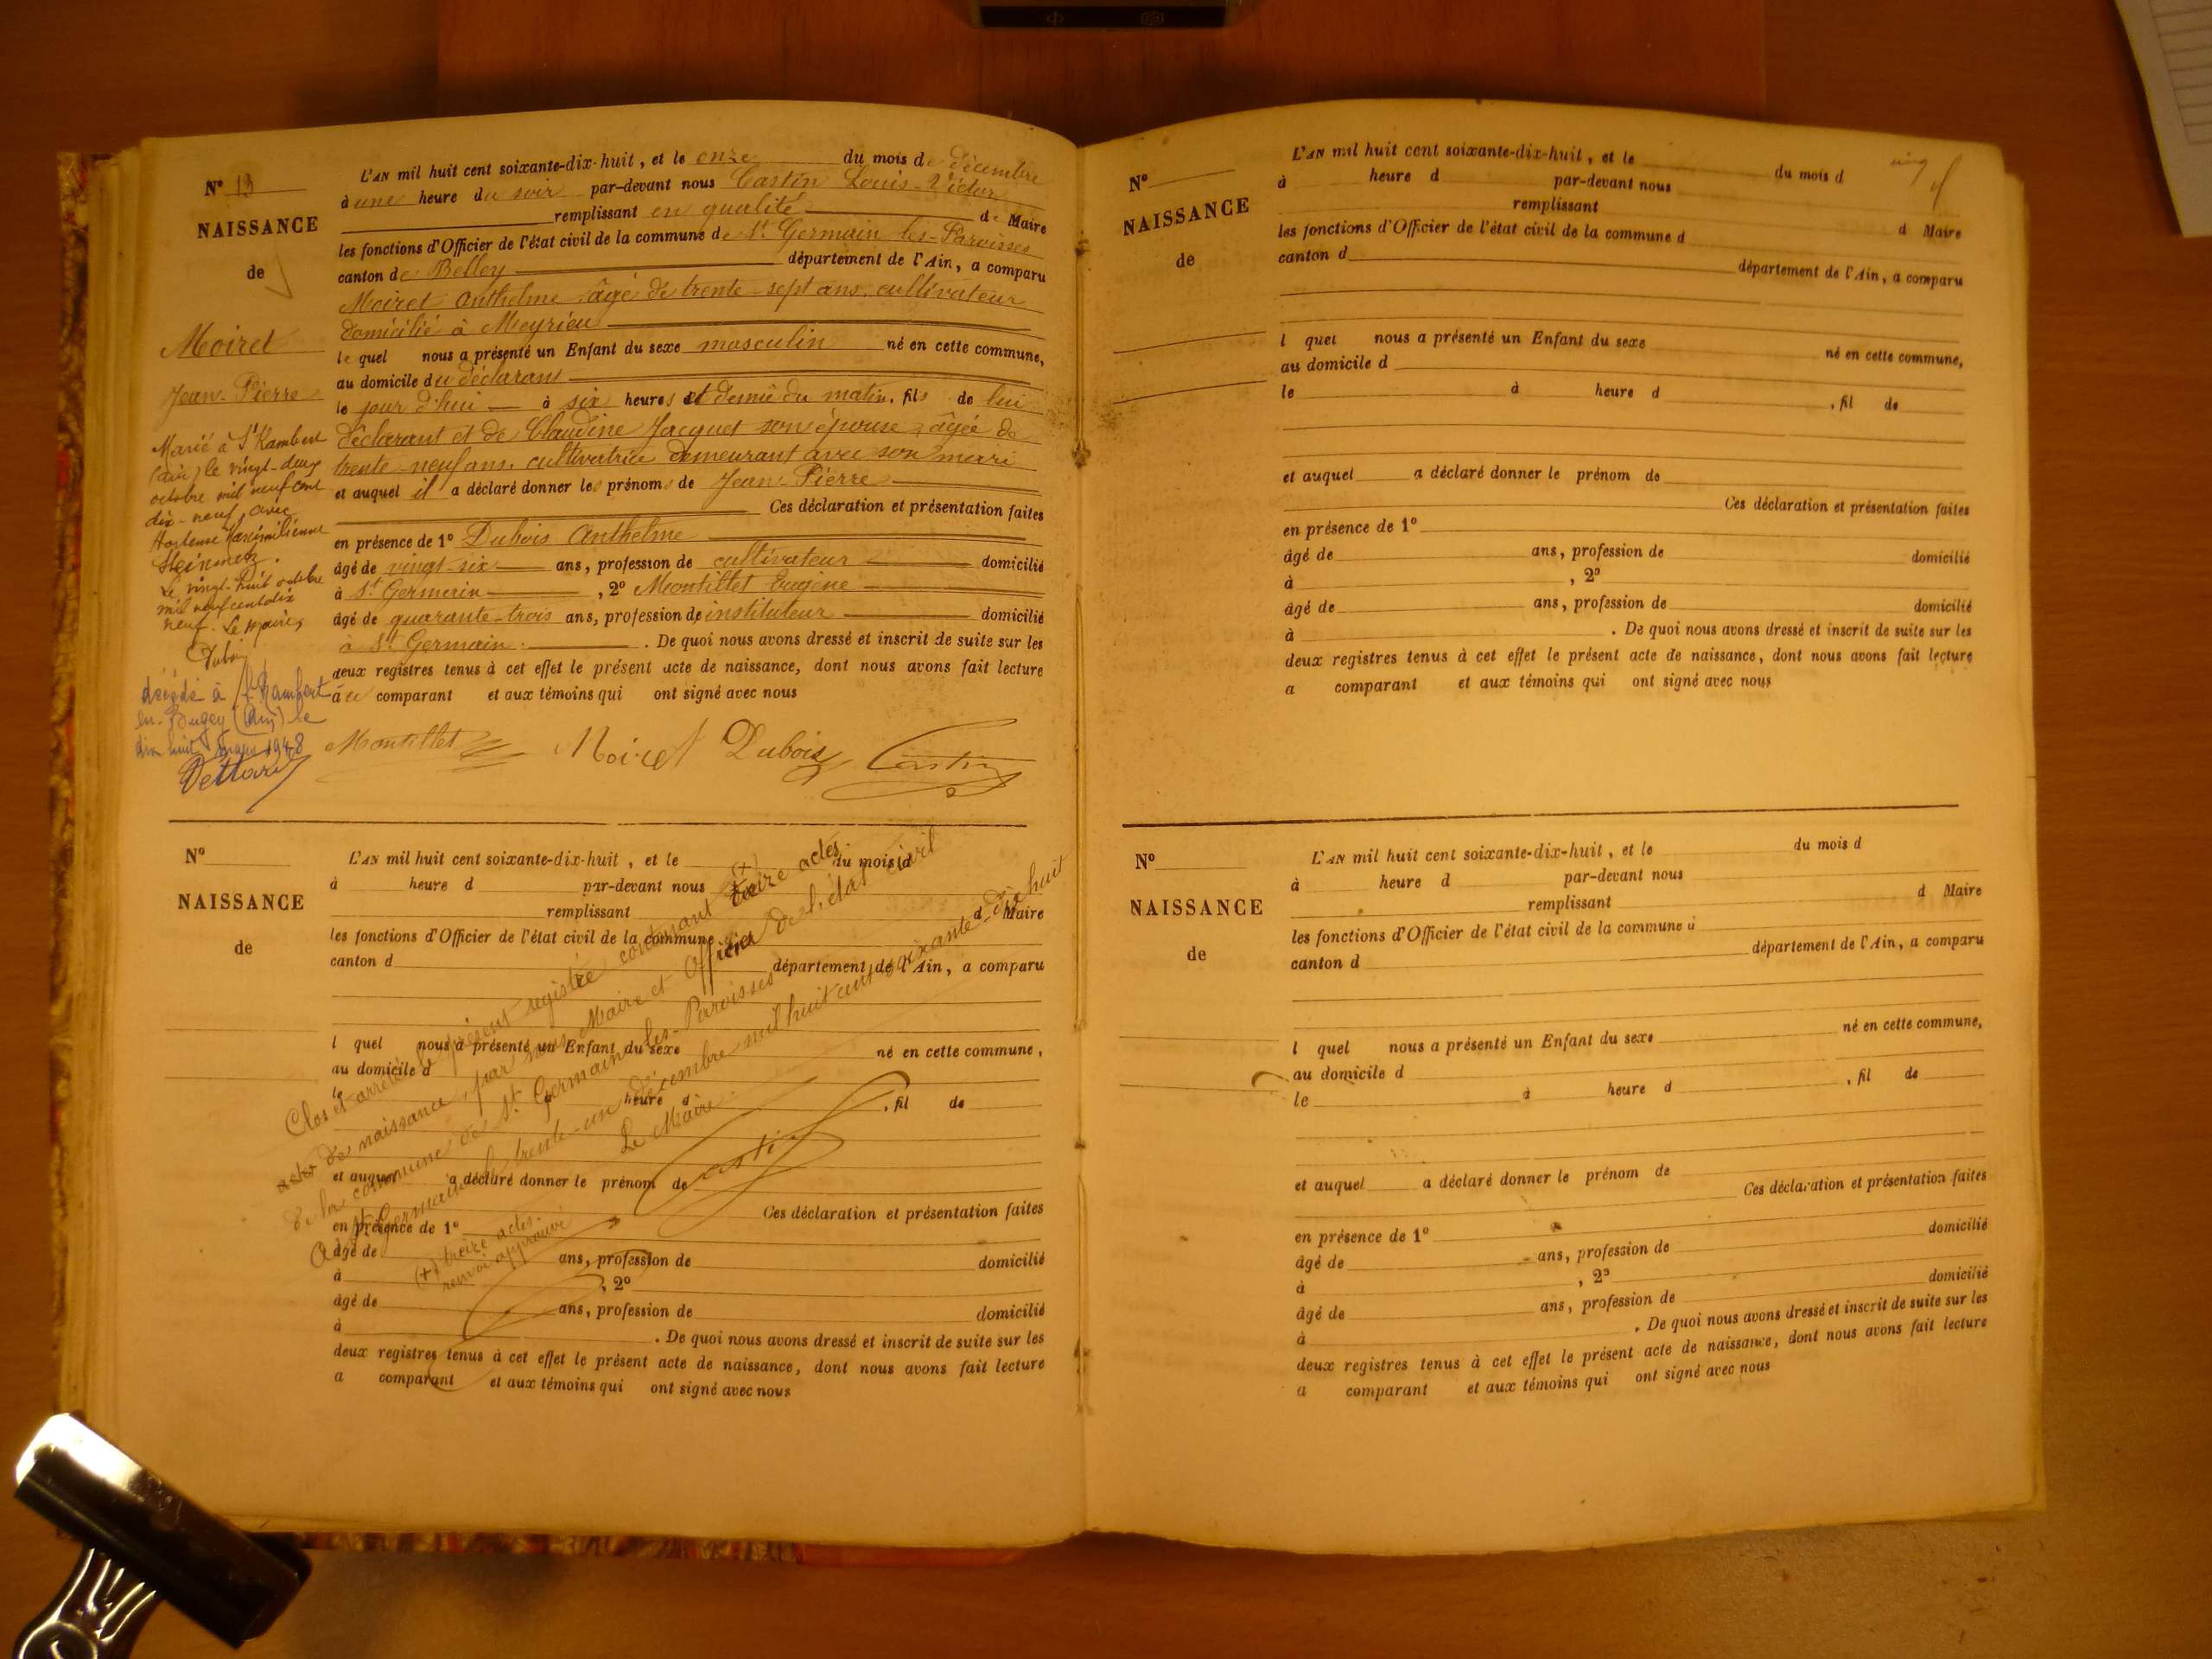 N° 13
NAISSANCE
de
Moiret
Jean-Pierre
Marié à St Rambert
(Ain) le vingt-deux
octobre mil neuf cent
dix-neuf, avec
Hortense Maximilienne
Steinmetz.
Le vingt-huit octobre
mil neuf cent dix
neuf. Le Maire,
Dubois
décédé à St Rambert
en-Bugey (Ain) le
dix huit mars 1948
L'AN mil huit cent soixante-dix-huit, et le onze du mois de Décembre
à une heure du soir par-devant nous Castin Louis-Victor
remplissant en qualité de Maire
les fonctions d'Officier de l'état civil de la commune de St Germain les-Paroisses
canton de Belley département de l'Ain, a comparu
Moiret Anthelme âgé de trente-sept ans, cultivateur
domicilié à Meyrieu
le quel nous a présenté un Enfant du sexe masculin né en cette commune,
au domicile du déclarant
le jour d'hui à six heures et demie du matin, fils de lui
déclarant et de Claudine Jacquet son épouse, âgée de
trente-neuf ans, cultivatrice demeurant avec son mari
et auquel il a déclaré donner les prénoms de Jean-Pierre
Ces déclaration et présentation faites
en présence de 1° Dubois Anthelme
âgé de vingt-six ans, profession de cultivateur domicilié
à St Germain, 2° Montillet Eugène
âgé de quarante-trois ans, profession de instituteur domicilié
à St Germain. De quoi nous avons dressé et inscrit de suite sur les
deux registres tenus à cet effet le présent acte de naissance, dont nous avons fait lecture
au comparant et aux témoins qui ont signé avec nous
Montillet Moiret Dubois Castin
N°
NAISSANCE
de
L'AN mil huit cent soixante-dix-huit, et le du mois d
à heure d par-devant nous
remplissant d Maire
les fonctions d'Officier de l'état civil de la commune
canton d département de l'Ain, a comparu
l quel nous a présenté un Enfant du sexe né en cette commune,
au domicile d
le à heure d , fil de
et auquel a déclaré donner le prénom de
Ces déclaration et présentation faites
en présence de 1°
âgé de ans, profession de domicilié
à , 2°
âgé de ans, profession de domicilié
à . De quoi nous avons dressé et inscrit de suite sur les
deux registres tenus à cet effet le présent acte de naissance, dont nous avons fait lecture
a comparant et aux témoins qui ont signé avec nous
Clos et arrêté le présent registre contenant (+) treize actes
actes de naissance, par nous Maire et Officier de l'état civil
de la commune de St Germain les-Paroisses
A St Germain le trente-un décembre mil huit cent soixante-dix huit
Le Maire.
Castin
(+) treize actes
renvoi approuvé
N°
NAISSANCE
de
L'AN mil huit cent soixante-dix-huit, et le du mois d
à heure d par-devant nous
remplissant d Maire
les fonctions d'Officier de l'état civil de la commune d
canton d département de l'Ain, a comparu
l quel nous a présenté un Enfant du sexe né en cette commune,
au domicile d
le à heure d , fil de
et auquel a déclaré donner le prénom de
Ces déclaration et présentation faites
en présence de 1°
âgé de ans, profession de domicilié
à , 2°
âgé de ans, profession de domicilié
à . De quoi nous avons dressé et inscrit de suite sur les
deux registres tenus à cet effet le présent acte de naissance, dont nous avons fait lecture
a comparant et aux témoins qui ont signé avec nous
N°
NAISSANCE
de
L'AN mil huit cent soixante-dix-huit, et le du mois d
à heure d par-devant nous
remplissant d Maire
les fonctions d'Officier de l'état civil de la commune d
canton d département de l'Ain, a comparu
l quel nous a présenté un Enfant du sexe né en cette commune,
au domicile d
le à heure d , fil de
et auquel a déclaré donner le prénom de
Ces déclaration et présentation faites
en présence de 1°
âgé de ans, profession de domicilié
à , 2°
âgé de ans, profession de domicilié
à . De quoi nous avons dressé et inscrit de suite sur les
deux registres tenus à cet effet le présent acte de naissance, dont nous avons fait lecture
a comparant et aux témoins qui ont signé avec nous